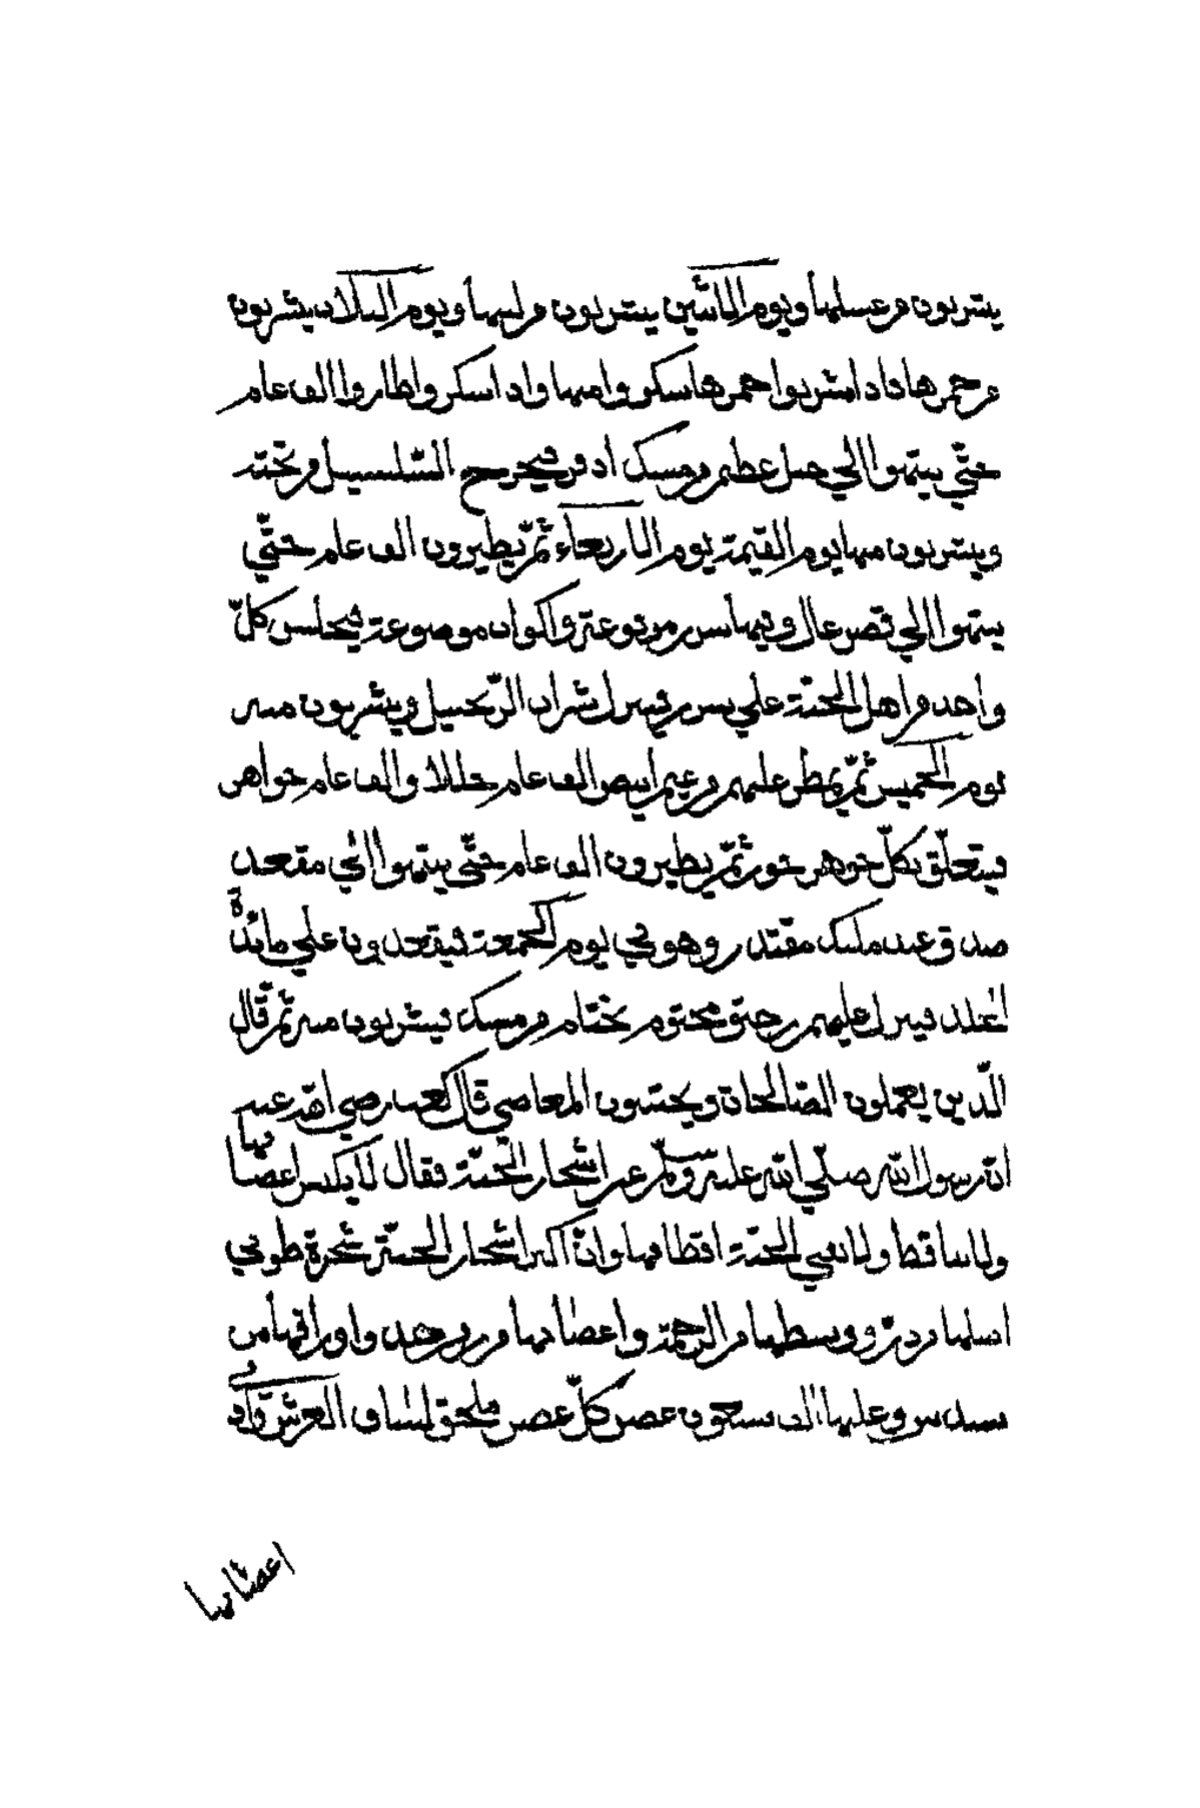 يشربون من عسلها ويوم الاثنين يشربون من لبنها ويوم الثلاث يشربون
من خمرها فاذا شربوا خمرها سكروا منها واذا سكروا طاروا الف عام
حتّي ينتهوا الي جبل عظيم من مسك اذفر فيخرج السّلسبيل من تحته
ويشربون منها يوم القيمة يوم الاربعاء ثمّ يطيرون الف عام حتّي
ينتهوا الي قصر عال وفيها سرر مرفوعة واكواب موضوعة فيجلس كلّ
واحد من اهل الجنّة علي سرر فينزل شراب الزّنجبيل ويشربون منه
يوم الخميس ثمّ يمطر عليهم من غيم ابيض الف عام حللا والف عام جواهر
فيتعلّق بكلّ جوهر حور ثمّ يطيرون الف عام حتّي ينتهوا الي مقعد
صدق عند ملك مقتدر وهو في يوم الجمعة فيقعدون علي مائدة
الخلد فينزل عليهم رحيق مختوم ختام من مسك فيشربون منه ثمّ قال
الّذين يعملون الصّالحات ويجتنبون المعاصي قال كعب رضي الله عنه
انّه رسول الله صلّي الله عليه وسلّم عن اشجار الجنّة فقال لا ييبس اغصانها
ولا ساقط ولا تفني الجنّة اقطافها وانّ اكبر اشجار الجنّة شجرة طوبي
اصلها من درّ ووسطها من الرحمة واغصانها من زبرجد واوراقها من
سندس وعليها الف سبعون غصن كلّ غصن ملحق لساق العرش وادني
اغصانها